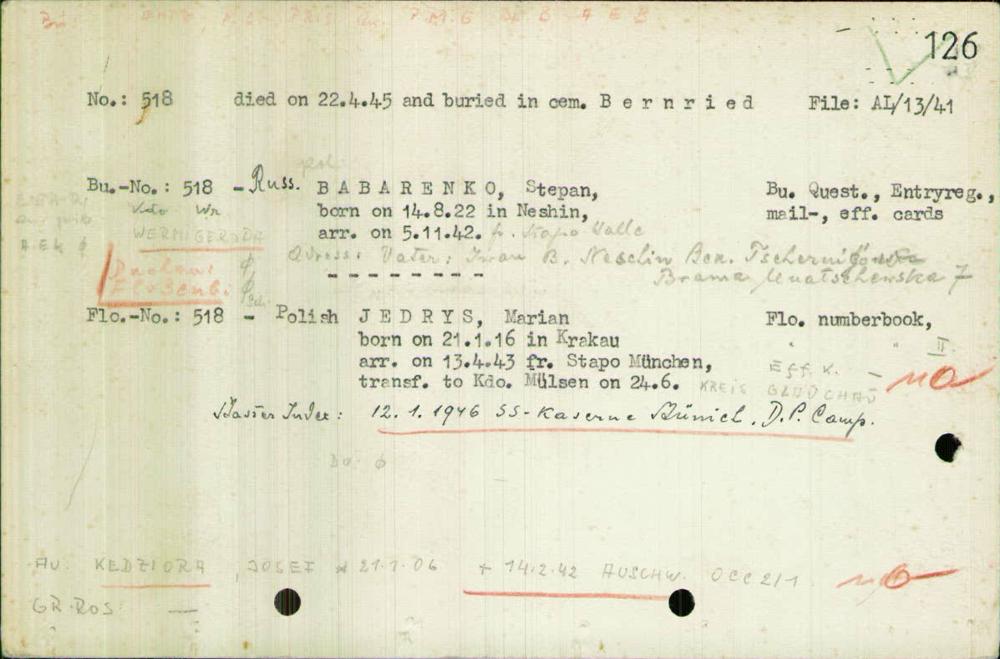 126
No.: 518 died on 22.4.45 and buried in cem. B e r n r i e d File: AL/13/41
pol
Bu.-No.: 518 - Russ. B A B A R E N K O, Stepan, Bu. Quest., Entryreg.,
Kdo Wr born on 14.8.22 in Neshin, mail-, eff. cards
WERNIGERODA arr. on 5.11.42. fr. Stapo Halle
Adress: Vater: Iwan B. Neschin Bez.
Dachau: ϕ Brama 7
Floßenb. ϕ
Flo.-No.: 518 - Polish J E D R Y S, Marian Flo. numberbook,
born on 21.1.16 in Krakau " " II
arr. on 13.4.43 fr. Stapo München, Eff. K. -
transf. to Kdo. Mülsen on 24.6. KREIS GLAUCHAU no
Master Index: 12.1.1946 SS-Kaserne Münich, D.P. Camp.
ϕ
AU. KEDZIORA, JOSEF * 21.1.06 + 14.2.42 AUSCHW. OCC 2/1 no
GR.ROS. —